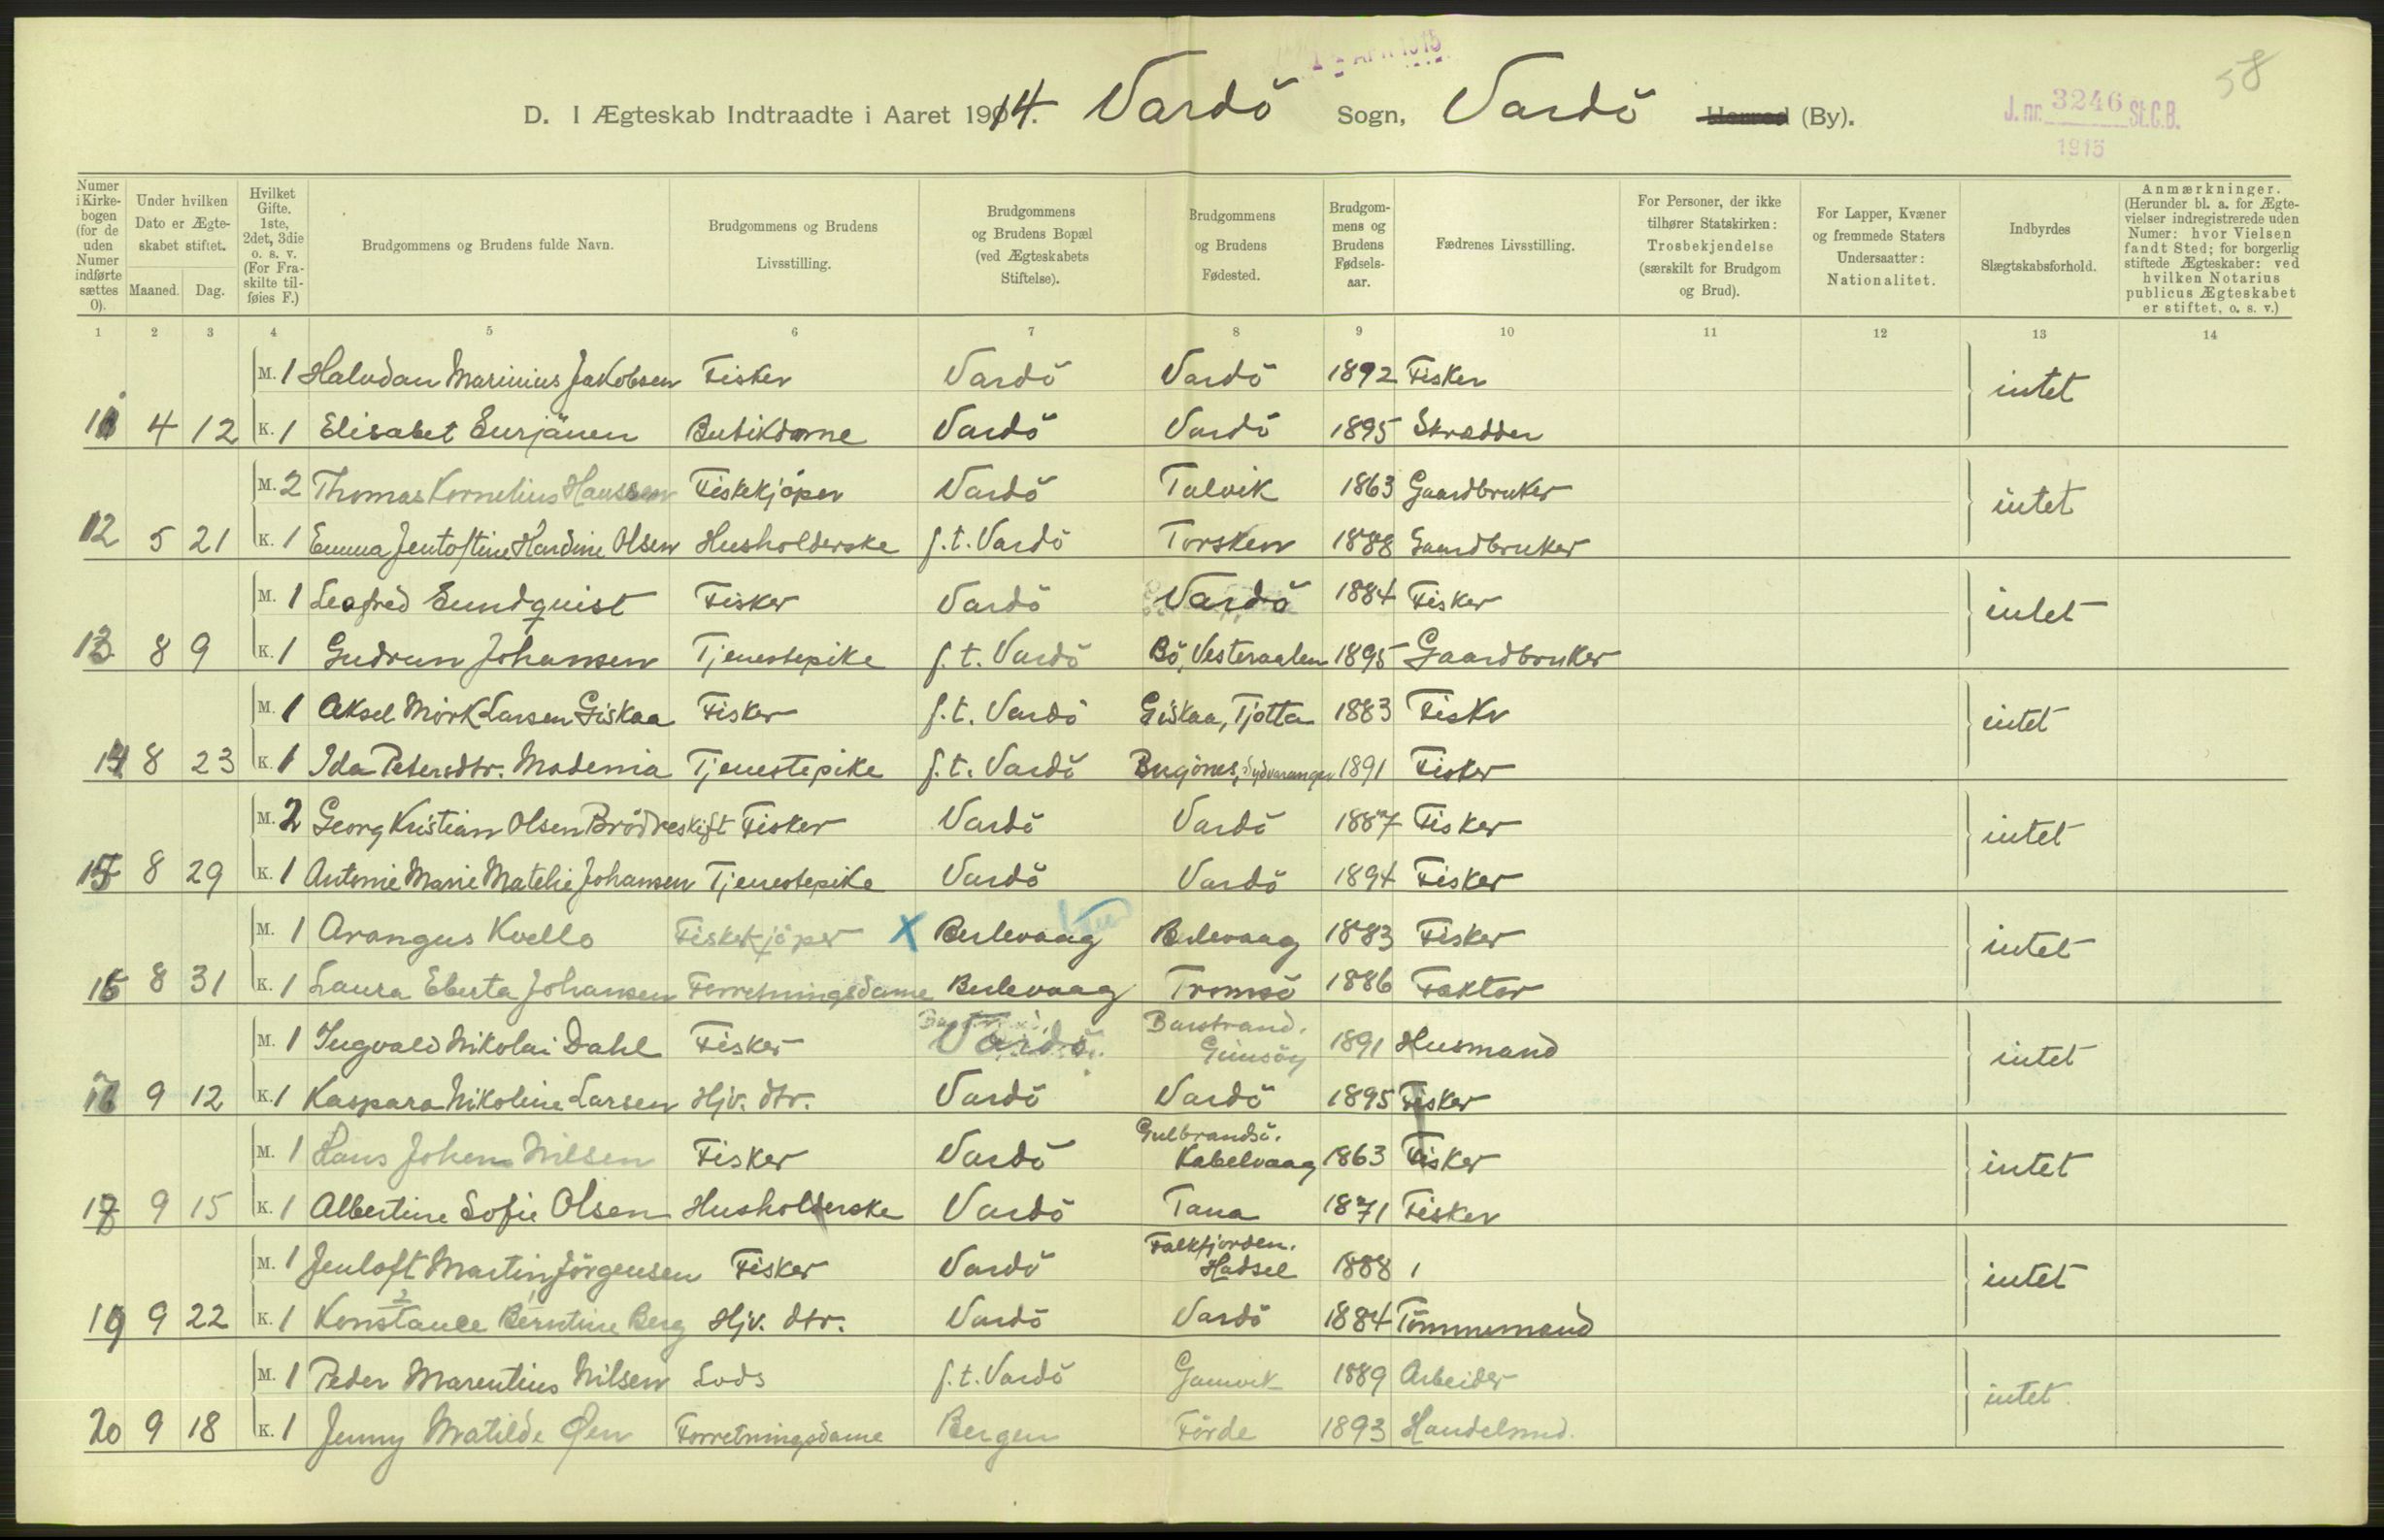 58
D. I Ægteskab Indtraadte i Aaret 1914. Vardö Sogn, Vardö Herred (By).
J. nr. 3246 St.C.B.
1915
Numer i Kirkebogen (for de uden Numer indførte sættes 0).
Under hvilken Dato er Ægteskabet stiftet.
Maaned. Dag.
Hvilket Gifte. 1ste, 2det, 3die o. s. v. (For Fraskilte tilføies F.)
Brudgommens og Brudens fulde Navn.
Brudgommens og Brudens Livsstilling.
Brudgommens og Brudens Bopæl (ved Ægteskabets Stiftelse).
Brudgommens og Brudens Fødested.
Brudgommens og Brudens Fødselsaar.
Fædrenes Livsstilling.
For Personer, der ikke tilhører Statskirken: Trosbekjendelse (særskilt for Brudgom og Brud).
For Lapper, Kvæner og fremmede Staters Undersaatter: Nationalitet.
Indbyrdes Slægtskabsforhold.
Anmærkninger. (Herunder bl. a. for Ægtevielser indregistrerede uden Numer: hvor Vielsen fandt Sted; for borgerlig stiftede Ægteskaber: ved hvilken Notarius publicus Ægteskabet er stiftet, o. s. v.)
1 2 3 4 5 6 7 8 9 10 11 12 13 14
M. 1 Halvdan Marinius Jakobsen Fisker Vardö Vardö 1892 Fisker intet
11 4 12 K. 1 Elisabet Eurjänen Butikdame Vardö Vardö 1895 Skrædder
M. 2 Thomas Kornelius Hanssen Fiskekjöper Vardö Talvik 1863 Gaardbruker intet
12 5 21 K. 1 Emma Jentoftine Hardine Olsen Husholderske f.t. Vardö Torsken 1888 Gaardbruker
M. 1 Leafred Sundquist Fisker Vardö Vardö 1884 Fisker intet
13 8 9 K. 1 Gudrun Johansen Tjenestepike f.t. Vardö Bö, Vesteraalen 1895 Gaardbruker
M. 1 Aksel Mörk Larsen Giskaa Fisker f.t. Vardö Giskaa, Tjotta 1883 Fiskr intet
14 8 23 K. 1 Ida Petersdtr. Madenia Tjenestepike f.t. Vardö Bugönes, Sydvaranger 1891 Fisker
M. 2 Georg Kristian Olsen Brödreskift Fisker Vardö Vardö 1887 Fisker intet
15 8 29 K. 1 Antonie Marie Matelie Johansen Tjenestepike Vardö Vardö 1894 Fisker
M. 1 Arangus Kvello Fiskekjöper X Berlevaag Berlevaag 1883 Fisker intet
16 8 31 K. 1 Laura Eberta Johansen Forretningsdame Berlevaag Tromsö 1886 Faktor
M. 1 Ingvald Nikolai Dahl Fisker Vardö Barstrand. Gimsöy 1891 Husmand intet
9 12 K. 1 Kaspara Nikoline Larsen Hjv. dtr. Vardö Vardö 1895 Fisker
M. 1 Hans Johan Nilsen Fisker Vardö Gulbrandsö. Kabelvaag 1863 Fisker intet
18 9 15 K. 1 Albertine Sofie Olsen Husholderske Vardö Tana 1871 Fisker
M. 1 Jentoft Martin Jörgensen Fisker Vardö Falkfjorden. Hadsel 1888 intet
19 9 22 K. 1 Konstance Berntine Berg Hjv. dtr. Vardö Vardö 1884 Tömmermand
M. 1 Peder Marentius Nilsen Lods f.t. Vardö Gamvik 1889 Arbeider intet
20 9 18 K. 1 Jenny Matilde Øen Forretningsdame Bergen Förde 1893 Handelsmd.